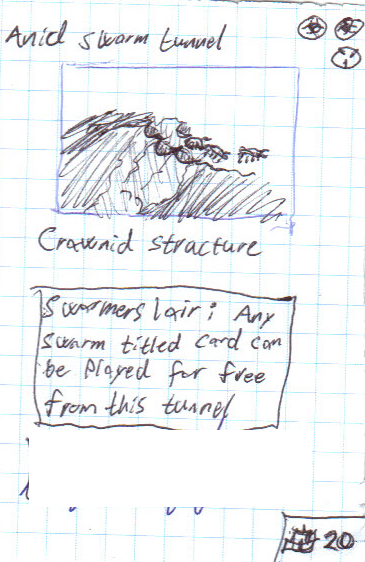 Arid swarm tunnel
1
Crawnid stracture
Swarmers lair: Any
swarm titled card can
be played for free
from this tunnel
20